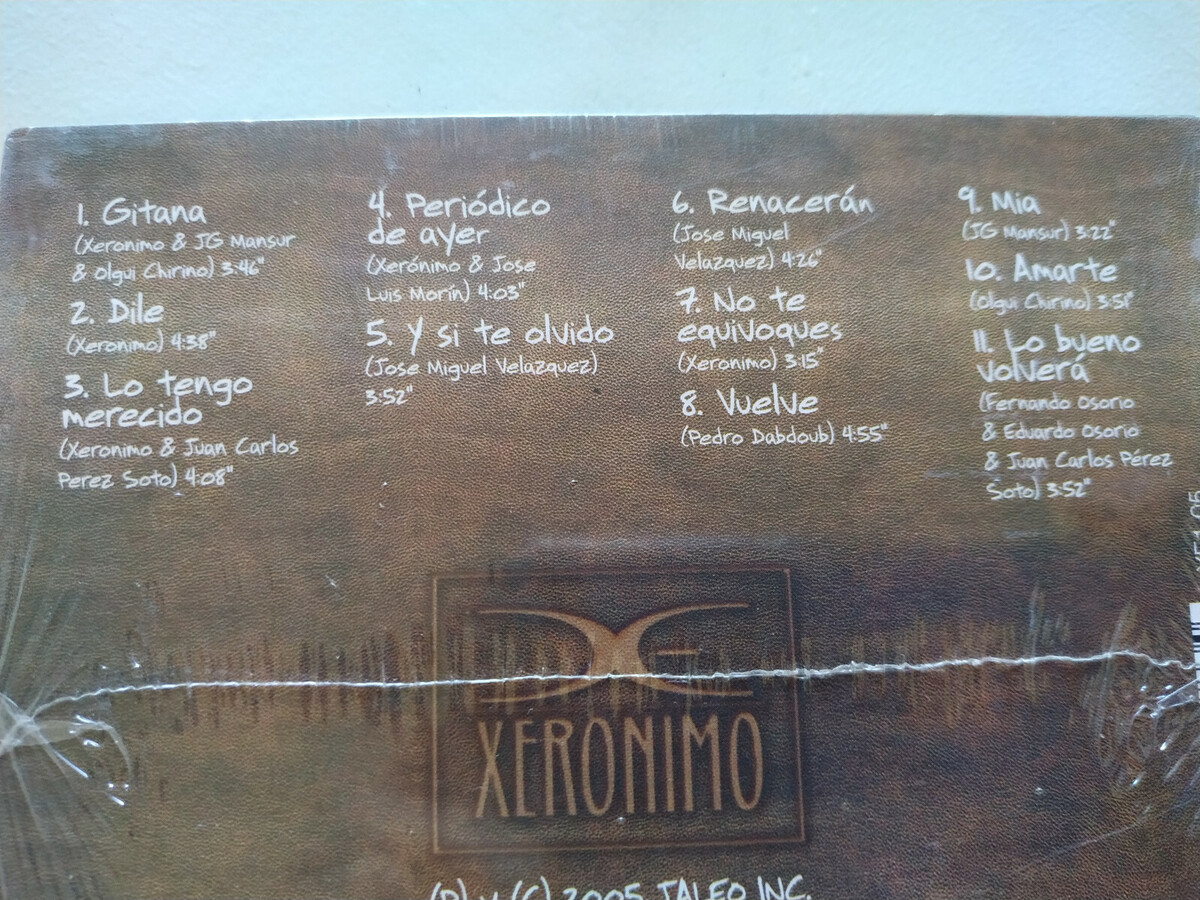 1. Gitana
(Xeronimo & JG Mansur
& Olgui Chirino) 3:46"
2. Dile
(Xeronimo) 4:38"
3. Lo tengo
merecido
(Xeronimo & Juan Carlos
Perez Soto) 4:08"
4. Periódico
de ayer
(Xerónimo & Jose
Luis Morín) 4:03"
5. Y si te olvido
(Jose Miguel Velazquez)
3:52"
6. Renacerán
(Jose Miguel
Velazquez) 4:26"
7. No te
equivoques
(Xeronimo) 3:15"
8. Vuelve
(Pedro Dabdoub) 4:55"
9. Mia
(JG Mansur) 3:22"
10. Amarte
(Olgui Chirino) 3:51"
11. Lo bueno
volverá
(Fernando Osorio
& Eduardo Osorio
& Juan Carlos Pérez
Soto) 3:52"
XERONIMO
(P) y (C) 2005 TALEO INC.